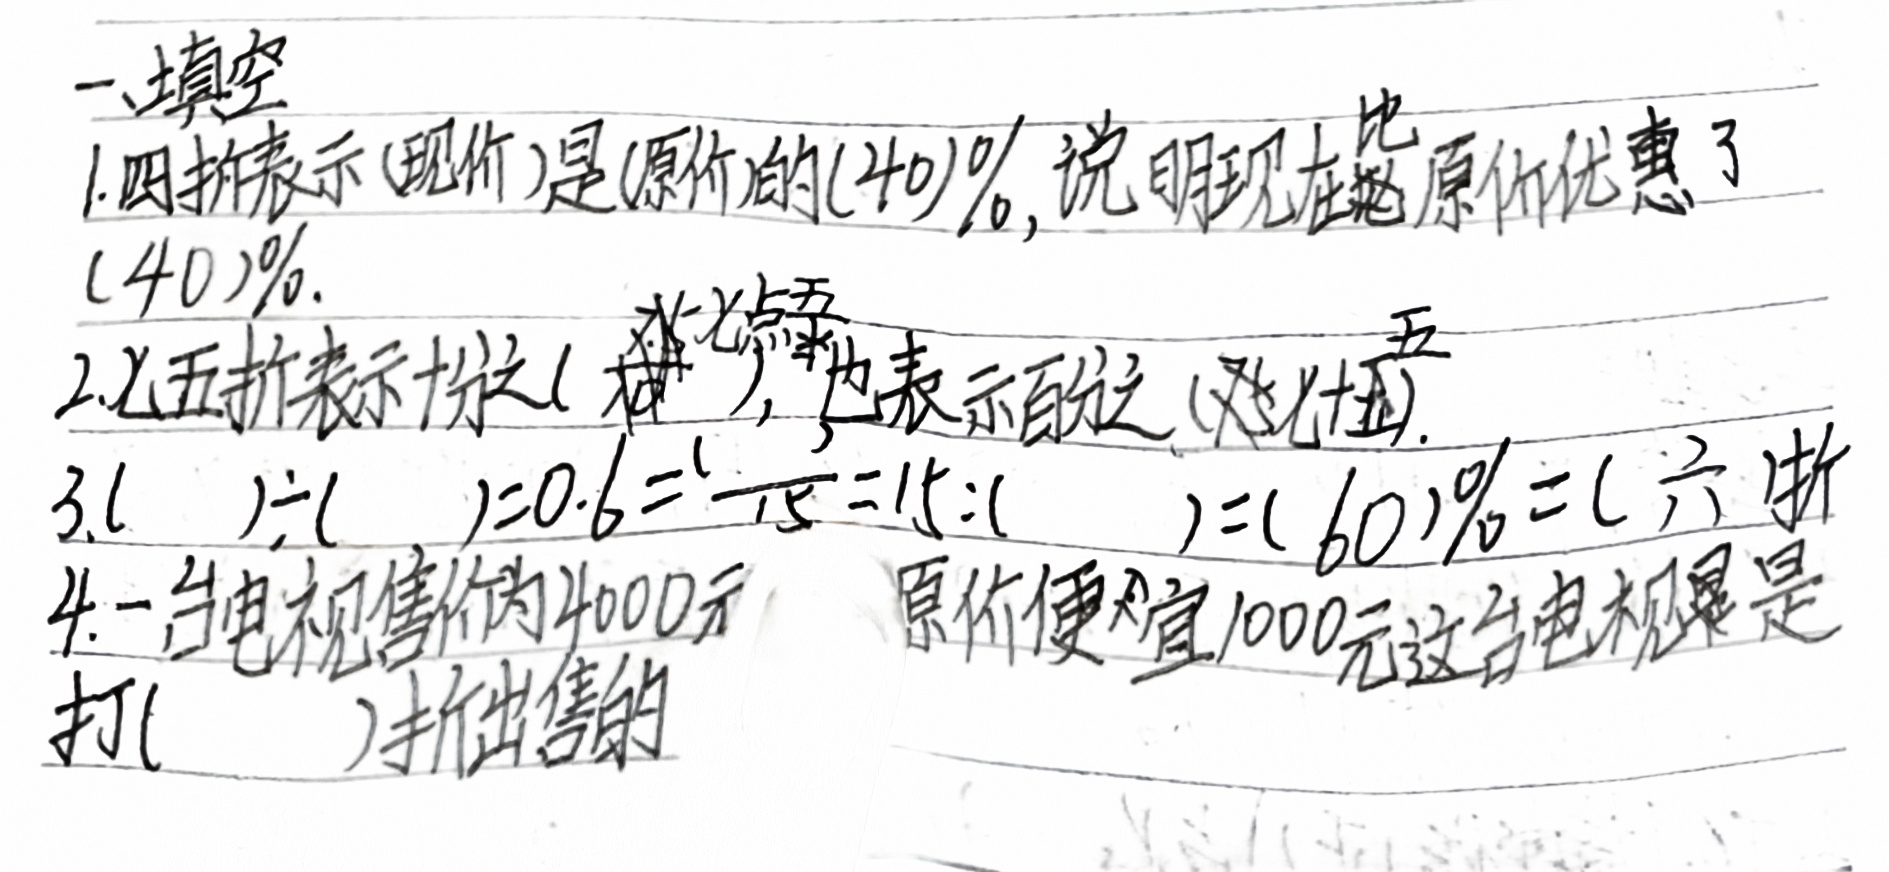 一、填空
1.四折表示(现价)是(原价)的(40)%,说明现在比原价优惠了
(40)%.
2.七五折表示十分之(七点五),也表示百分之(七十五).
3.( )÷( )=0.6=( )/15=15:( )=(60)%=(六)折
4.一台电视售价为4000元 原价便宜1000元这台电视是
打( )折出售的